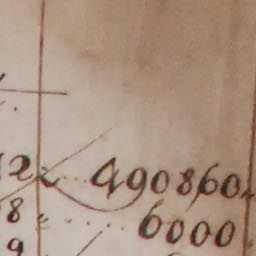 12 490860.
8 " .... 6000.
9